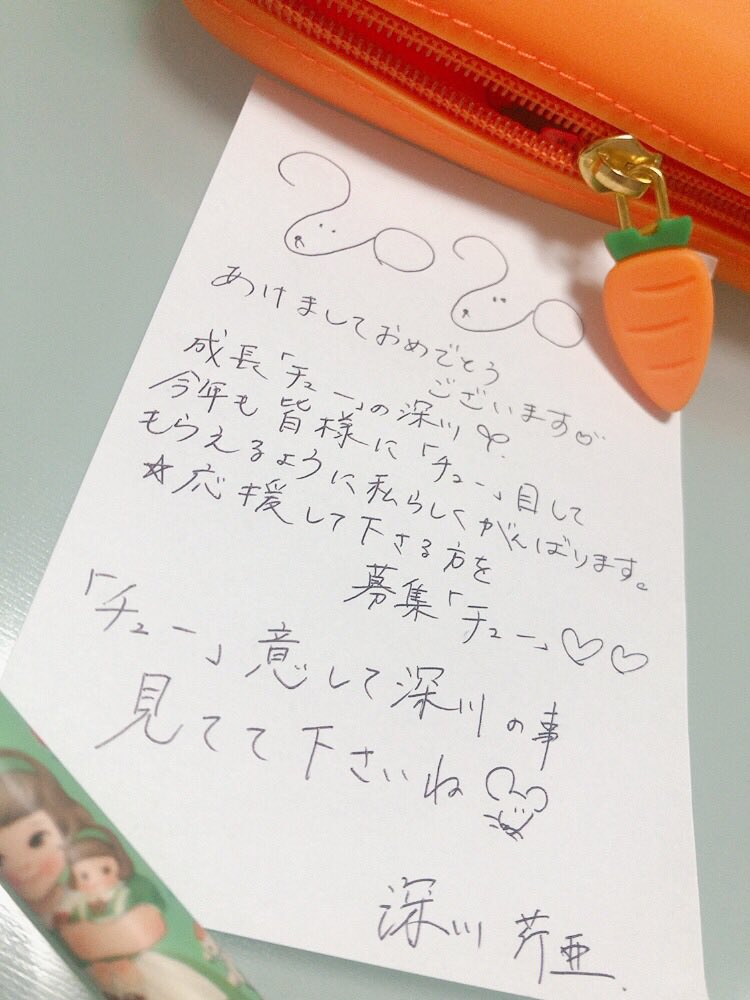 2020
あけましておめでとう
ございます♡
成長「チュー」の深川
今年も皆様に「チュー」目して
もらえるように私らしくがんばります。
☆応援して下さる方を
募集「チュー」♡♡
「チュー」意して深川の事
見てて下さいね
深川 芹亜